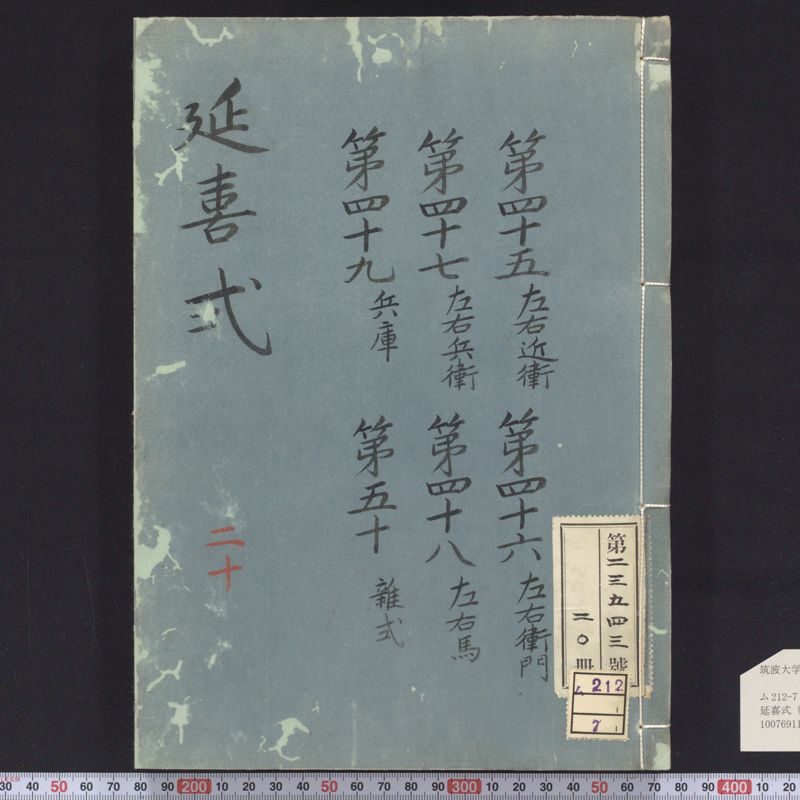 第四十五 左右近衛
第四十六 左右衛門
第四十七 左右兵衛
第四十八 左右馬
第四十九 兵庫
第五十 雑式
延喜式
二十
第二三五四三號
二〇冊
ム212
7
筑波大学
ム212-7
延喜式
10076911
30 40 50 60 70 80 90 200 10 20 30 40 50 60 70 80 90 300 10 20 30 40 50 60 70 80 90 400 10 20